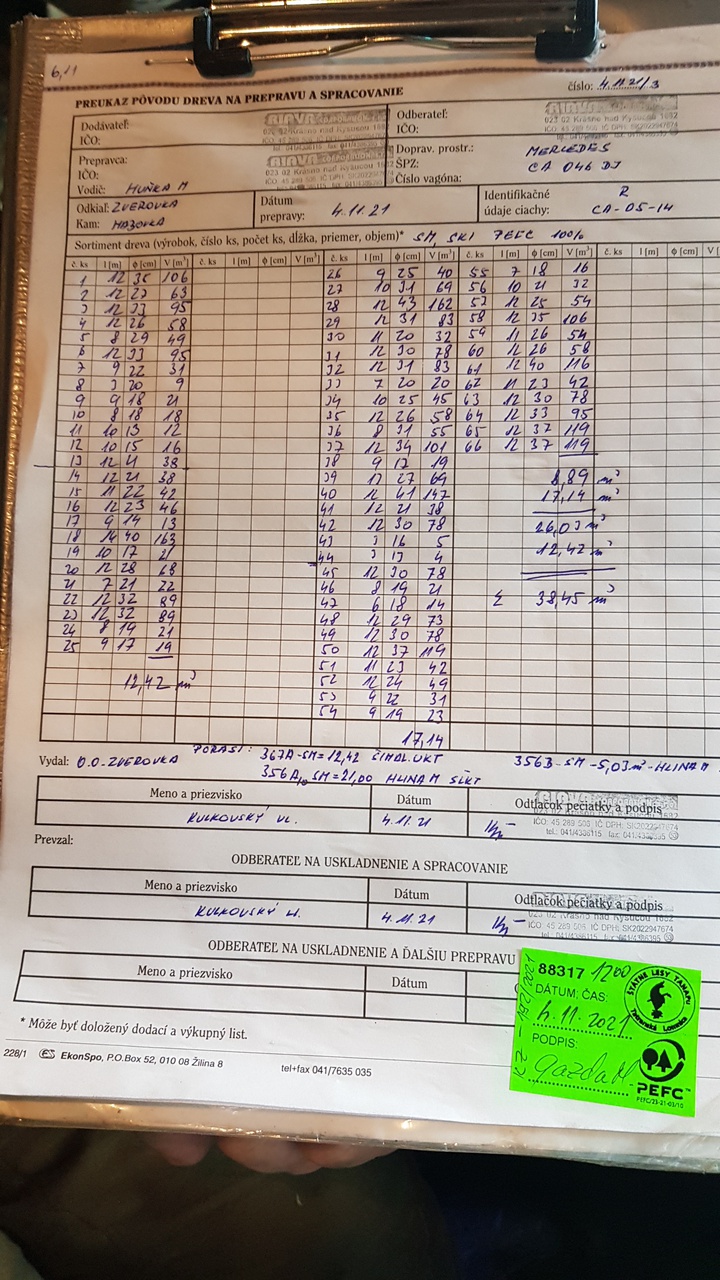 6,11
číslo: 4.11.21/3
PREUKAZ PÔVODU DREVA NA PREPRAVU A SPRACOVANIE
Dodávateľ: RIAVA
IČO:
Odberateľ: RIAVA
IČO:
Prepravca: RIAVA
IČO:
Vodič: MUŇKA M
Doprav. prostr.: MERCEDES
ŠPZ: CA 046 DJ
Číslo vagóna:
Odkiaľ: ZVEROVKA
Kam: HABOVKA
Dátum prepravy: 4.11.21
Identifikačné údaje ciachy: R CA-05-14
Sortiment dreva (výrobok, číslo ks, počet ks, dĺžka, priemer, objem)* SM, SKI PEFC 100%
č. ks l [m] ϕ [cm] V [m³] č. ks l [m] ϕ [cm] V [m³] č. ks l [m] ϕ [cm] V [m³] č. ks l [m] ϕ [cm] V [m³] č. ks l [m] ϕ [cm] V [m³]
1 12 35 106 26 9 25 40 55 7 18 16
2 12 27 63 27 10 31 69 56 10 21 32
3 12 33 95 28 12 43 162 57 12 25 54
4 12 26 58 29 12 31 83 58 12 35 106
5 8 29 49 30 11 20 32 59 11 26 54
6 12 33 95 31 12 30 78 60 12 26 58
7 9 22 31 32 12 31 83 61 12 40 116
8 3 20 9 33 7 20 20 62 11 23 42
9 9 18 21 34 10 25 45 63 12 30 78
10 8 18 18 35 12 26 58 64 12 33 95
11 10 13 12 36 8 31 55 65 12 37 119
12 10 15 16 37 12 34 101 66 12 37 119
13 12 21 38 38 9 17 19
14 12 21 38 39 13 27 69 8,89 m³
15 11 22 42 40 12 41 147 17,14 m³
16 12 23 46 41 12 21 38
17 9 14 13 42 12 30 78 26,03 m³
18 14 40 163 43 3 16 5 12,42 m³
19 10 17 21 44 3 13 4
20 12 28 68 45 12 30 78
21 7 21 22 46 8 19 21 Σ 38,45 m³
22 12 32 89 47 6 18 14
23 12 32 89 48 12 29 73
24 8 19 21 49 12 30 78
25 9 17 19 50 12 37 119
51 11 23 42
12,42 m³ 52 12 24 49
53 9 22 31
54 9 19 23
17,14
Vydal: O.O-ZVEROVKA PORAST: 367A-SM=12,42 ŠINDL. UKT 356B-SM-5,03m³-HLINA M
356A10 SM=21,00 HLINA M SLKT
Meno a priezvisko Dátum Odtlačok pečiatky a podpis
KULKOVSKÝ VL. 4.11.21
IČO: 45 269 506 IČ DPH: SK2022947674
Prevzal:
ODBERATEĽ NA USKLADNENIE A SPRACOVANIE
Meno a priezvisko Dátum Odtlačok pečiatky a podpis
KULKOVSKÝ VL. 4.11.21
023 02 Krásno nad Kysucou 1652
IČO: 45 269 506 IČ DPH: SK2022947674
ODBERATEĽ NA USKLADNENIE A ĎALŠIU PREPRAVU
Meno a priezvisko Dátum
* Môže byť doložený dodací a výkupný list.
228/1 ES EkonSpo, P.O.Box 52, 010 08 Žilina 8 tel+fax 041/7635 035
88317 1200
DÁTUM; ČAS:
4.11.2021
PODPIS:
gazda M
ŠTÁTNE LESY TANAPU
Tatranská Lomnica
PEFC™
PEFC/23-21-03/10